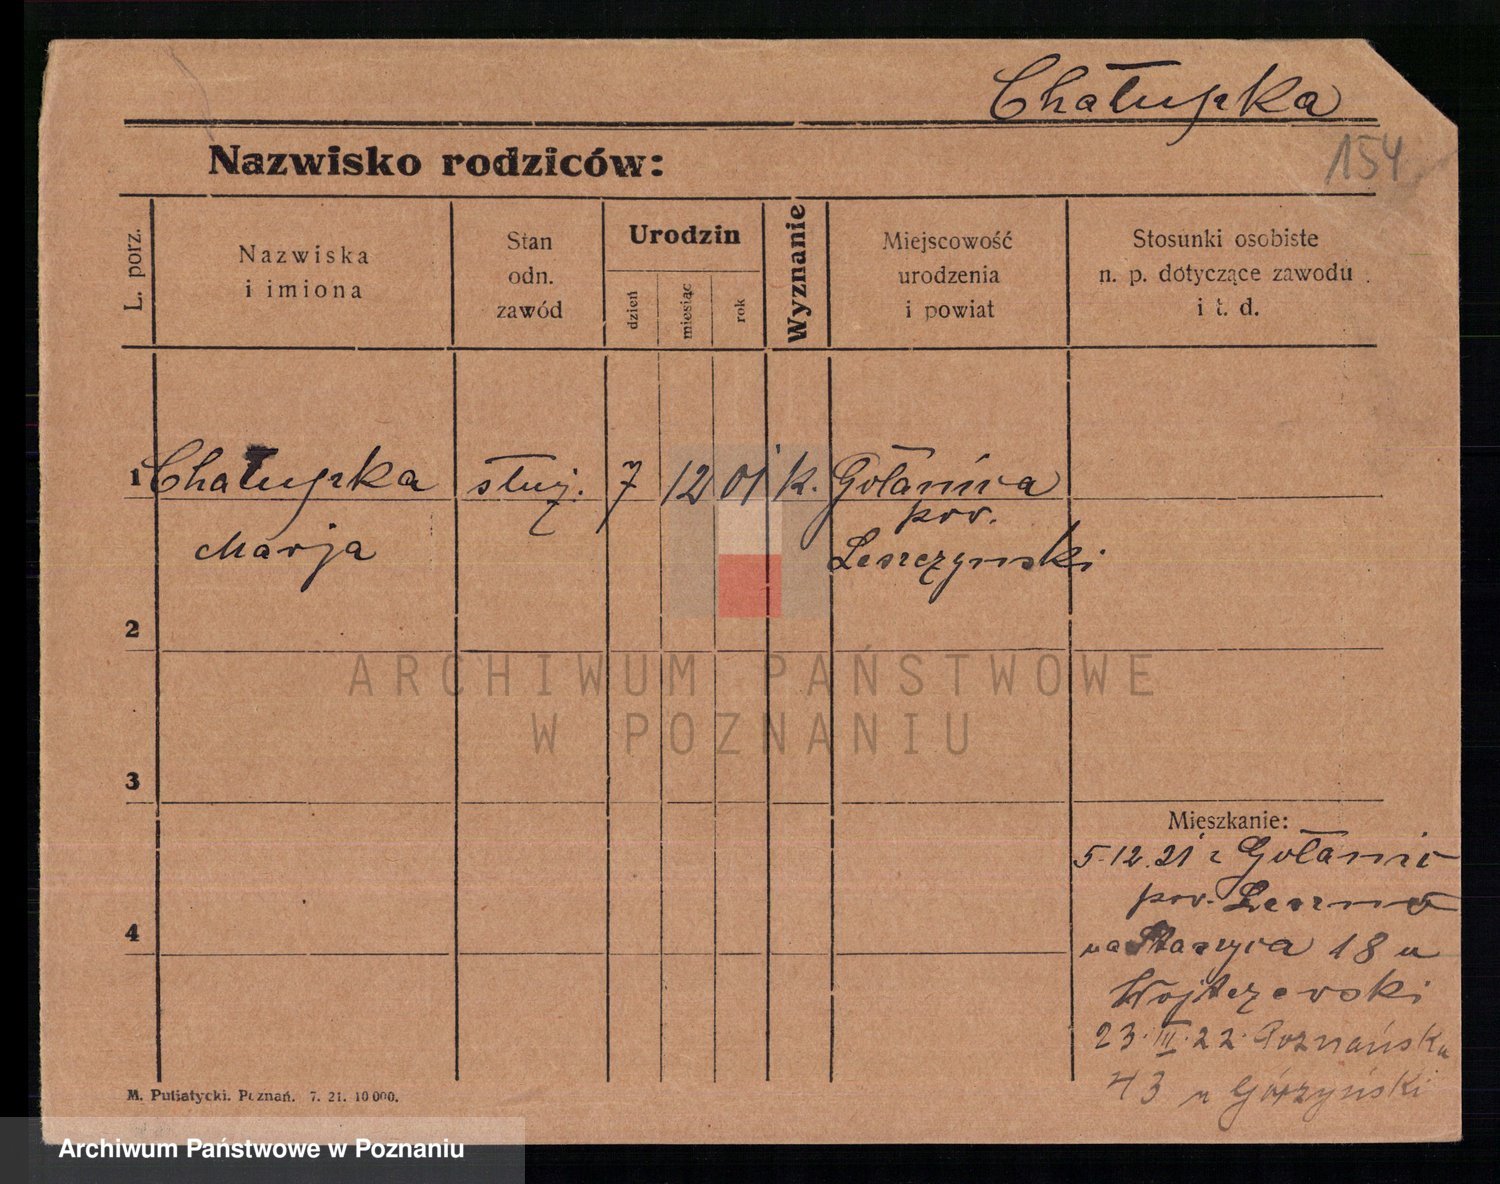 Chałupka
154
Nazwisko rodziców:
L. porz.
Nazwiska
i imiona
Stan
odn.
zawód
Urodzin
dzień
miesiąc
rok
Wyznanie
Miejscowość
urodzenia
i powiat
Stosunki osobiste
n. p. dotyczące zawodu
i t. d.
1 Chałupka służ. 7 12 01 k. Gołanica
pow.
Marja Leszczynski
2
3
4
Mieszkanie:
5.12.21 z Gołanic
pow. Leszno
na Staszyca 18 u
23.III.22. Poznańska
43 u Górzyński
M. Putiatycki. Poznań. 7. 21. 10 000.
ARCHIWUM PAŃSTWOWE
W POZNANIU
Archiwum Państwowe w Poznaniu